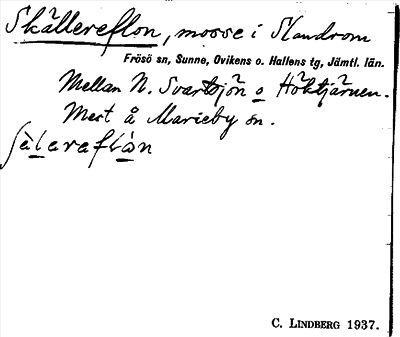 Skällereflon, mosse i Slandrom
Frösö sn, Sunne, Ovikens o. Hallens tg, Jämtl. län.
Mellan N. Svartsjön o Höktjärnen.
Mest å Marieby sn.
ʃälaraflàn
C. LINDBERG 1937.